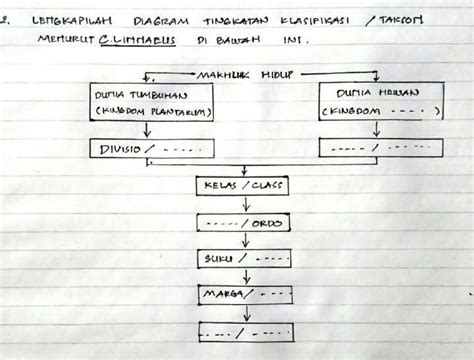 2. LENGKAPILAH DIAGRAM TINGKATAN KLASIFIKASI / TAKSON
MENURUT C.LINNAEUS DI BAWAH INI.
MAKHLUK HIDUP
DUNIA TUMBUHAN
(KINGDOM PLANTARUM)
DUNIA HEWAN
(KINGDOM -----)
DIVISIO / -----
----- / -----
KELAS / CLASS
----- / ORDO
SUKU / -----
MARGA / -----
----- / -----